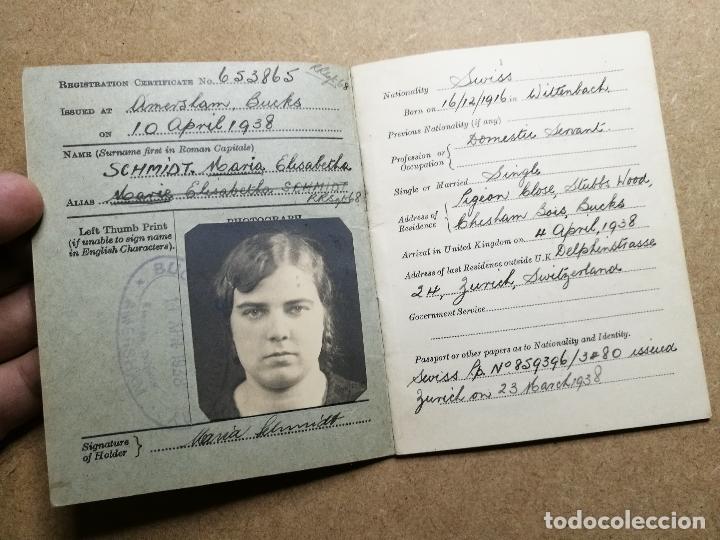 REGISTRATION CERTIFICATE No. 653865
ISSUED AT Amersham, Bucks
ON 10 April 1938
NAME (Surname first in Roman Capitals)
SCHMIDT. Maria Elisabetha
ALIAS Marie Elisabetha SCHMIDT
Left Thumb Print
(if unable to sign name
in English Characters).
PHOTOGRAPH
Signature
of Holder
Maria Schmidt
Nationality Swiss
Born on 16/12/1916 in Wittenbach
Previous Nationality (if any)
Profession or
Occupation
Domestic Servant
Single or Married Single
Address of
Residence
Pigeon Close, Stubbs Wood,
Chesham Bois, Bucks
Arrival in United Kingdom on 4 April, 1938
Address of last Residence outside U.K. Delphinstrasse
24, Zurich, Switzerland
Government Service
Passport or other papers as to Nationality and Identity.
Swiss Pp. No 859396/3280 issued
Zurich on 23 March 1938
todocoleccion.net